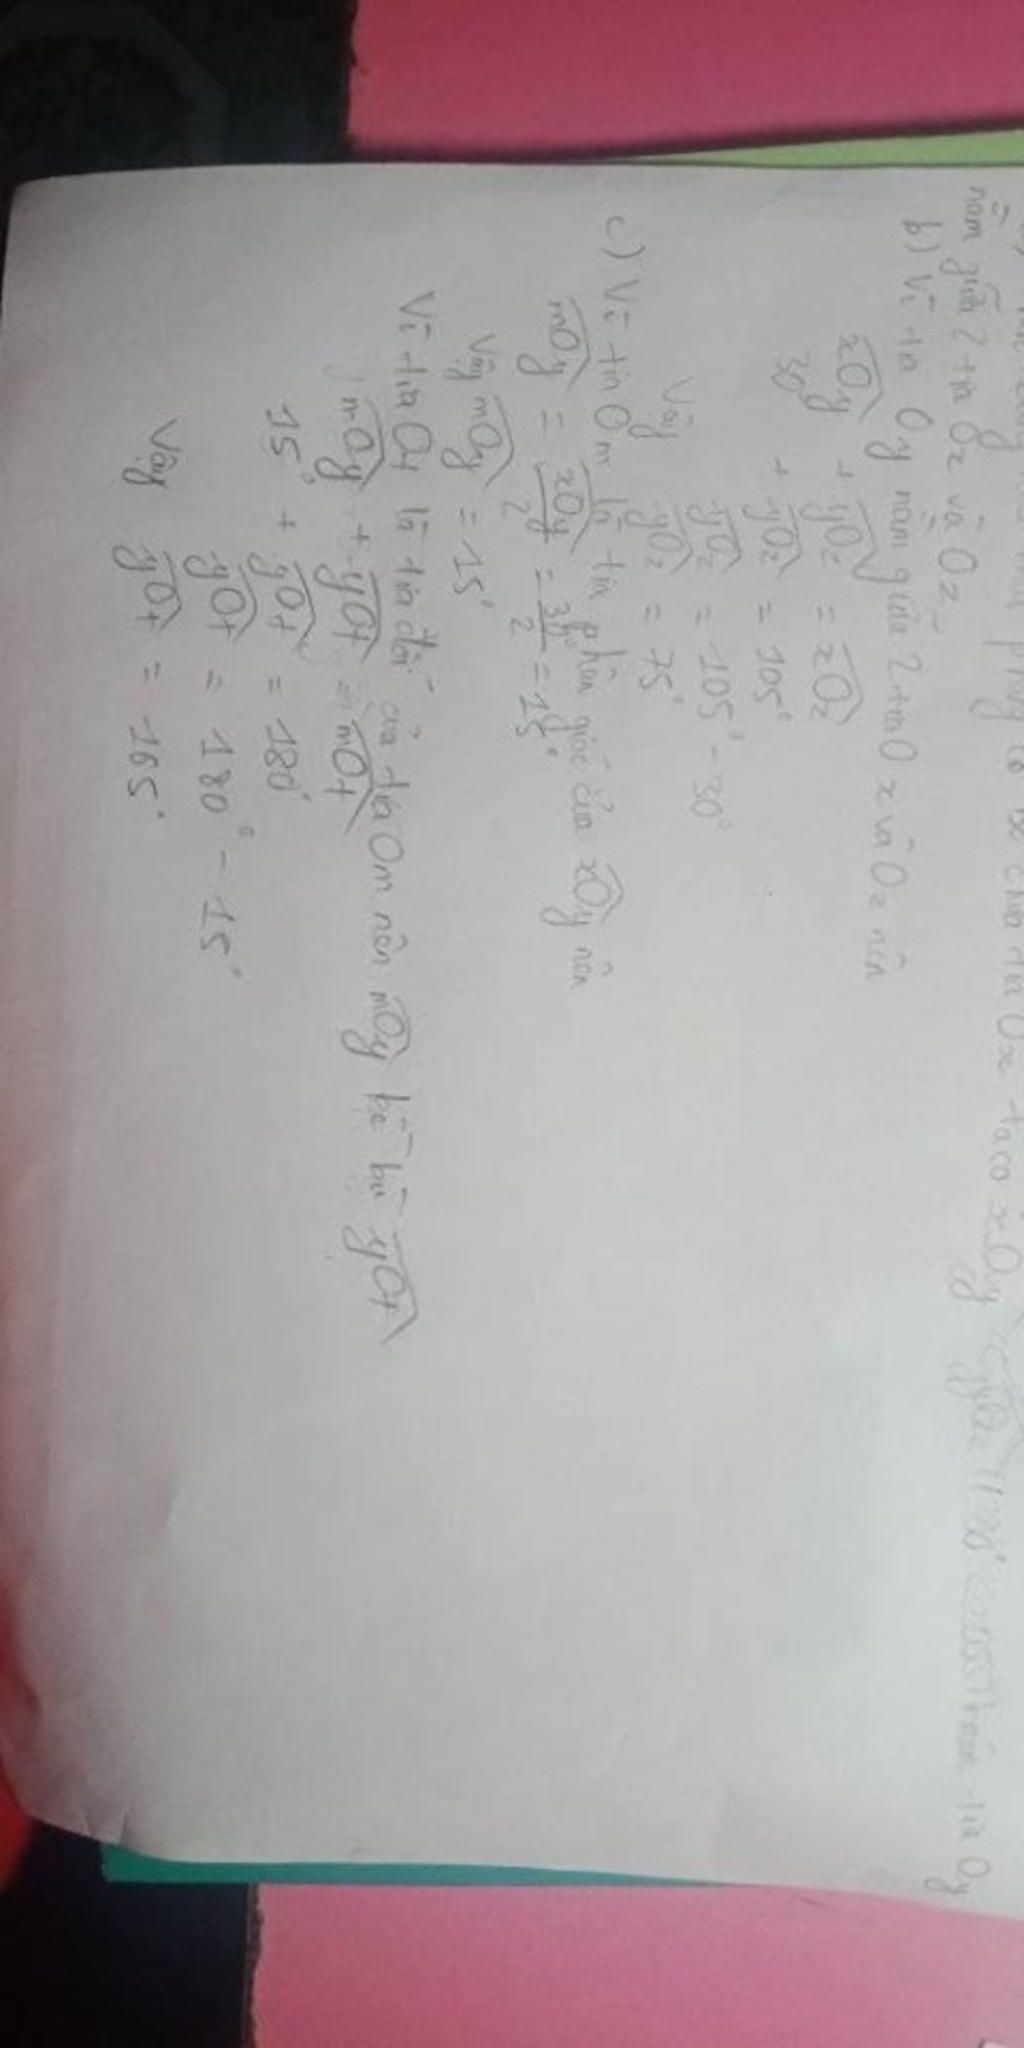 nửa mặt phẳng có bờ chứa tia Ox ta có xOy < xOz
nằm giữa 2 tia Ox và Oz
b) Vì tia Oy nằm giữa 2 tia Ox và Oz nên
xOy + yOz = xOz
30° + yOz = 105°
yOz = 105° - 30°
Vậy yOz = 75°
c) Vì tia Om là tia phân giác của xOy nên
mOy = xOy/2 = 30°/2 = 15°
Vậy mOy = 15°
Vì tia Ot là tia đối của tia Om nên mOy kề bù yOt
mOy + yOt = mOt
15° + yOt = 180°
yOt = 180° - 15°
Vậy yOt = 165°